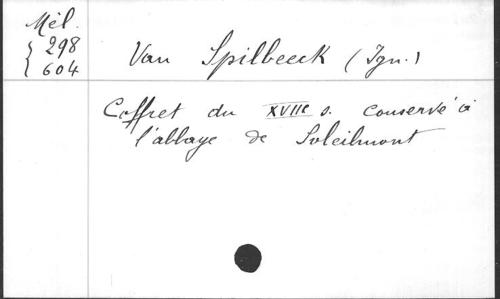 Mél.
{ 298
{ 604
Van Spilbeeck (Ign.)
Coffret du XVIIe s. conservé à
l'abbaye de Soleilmont